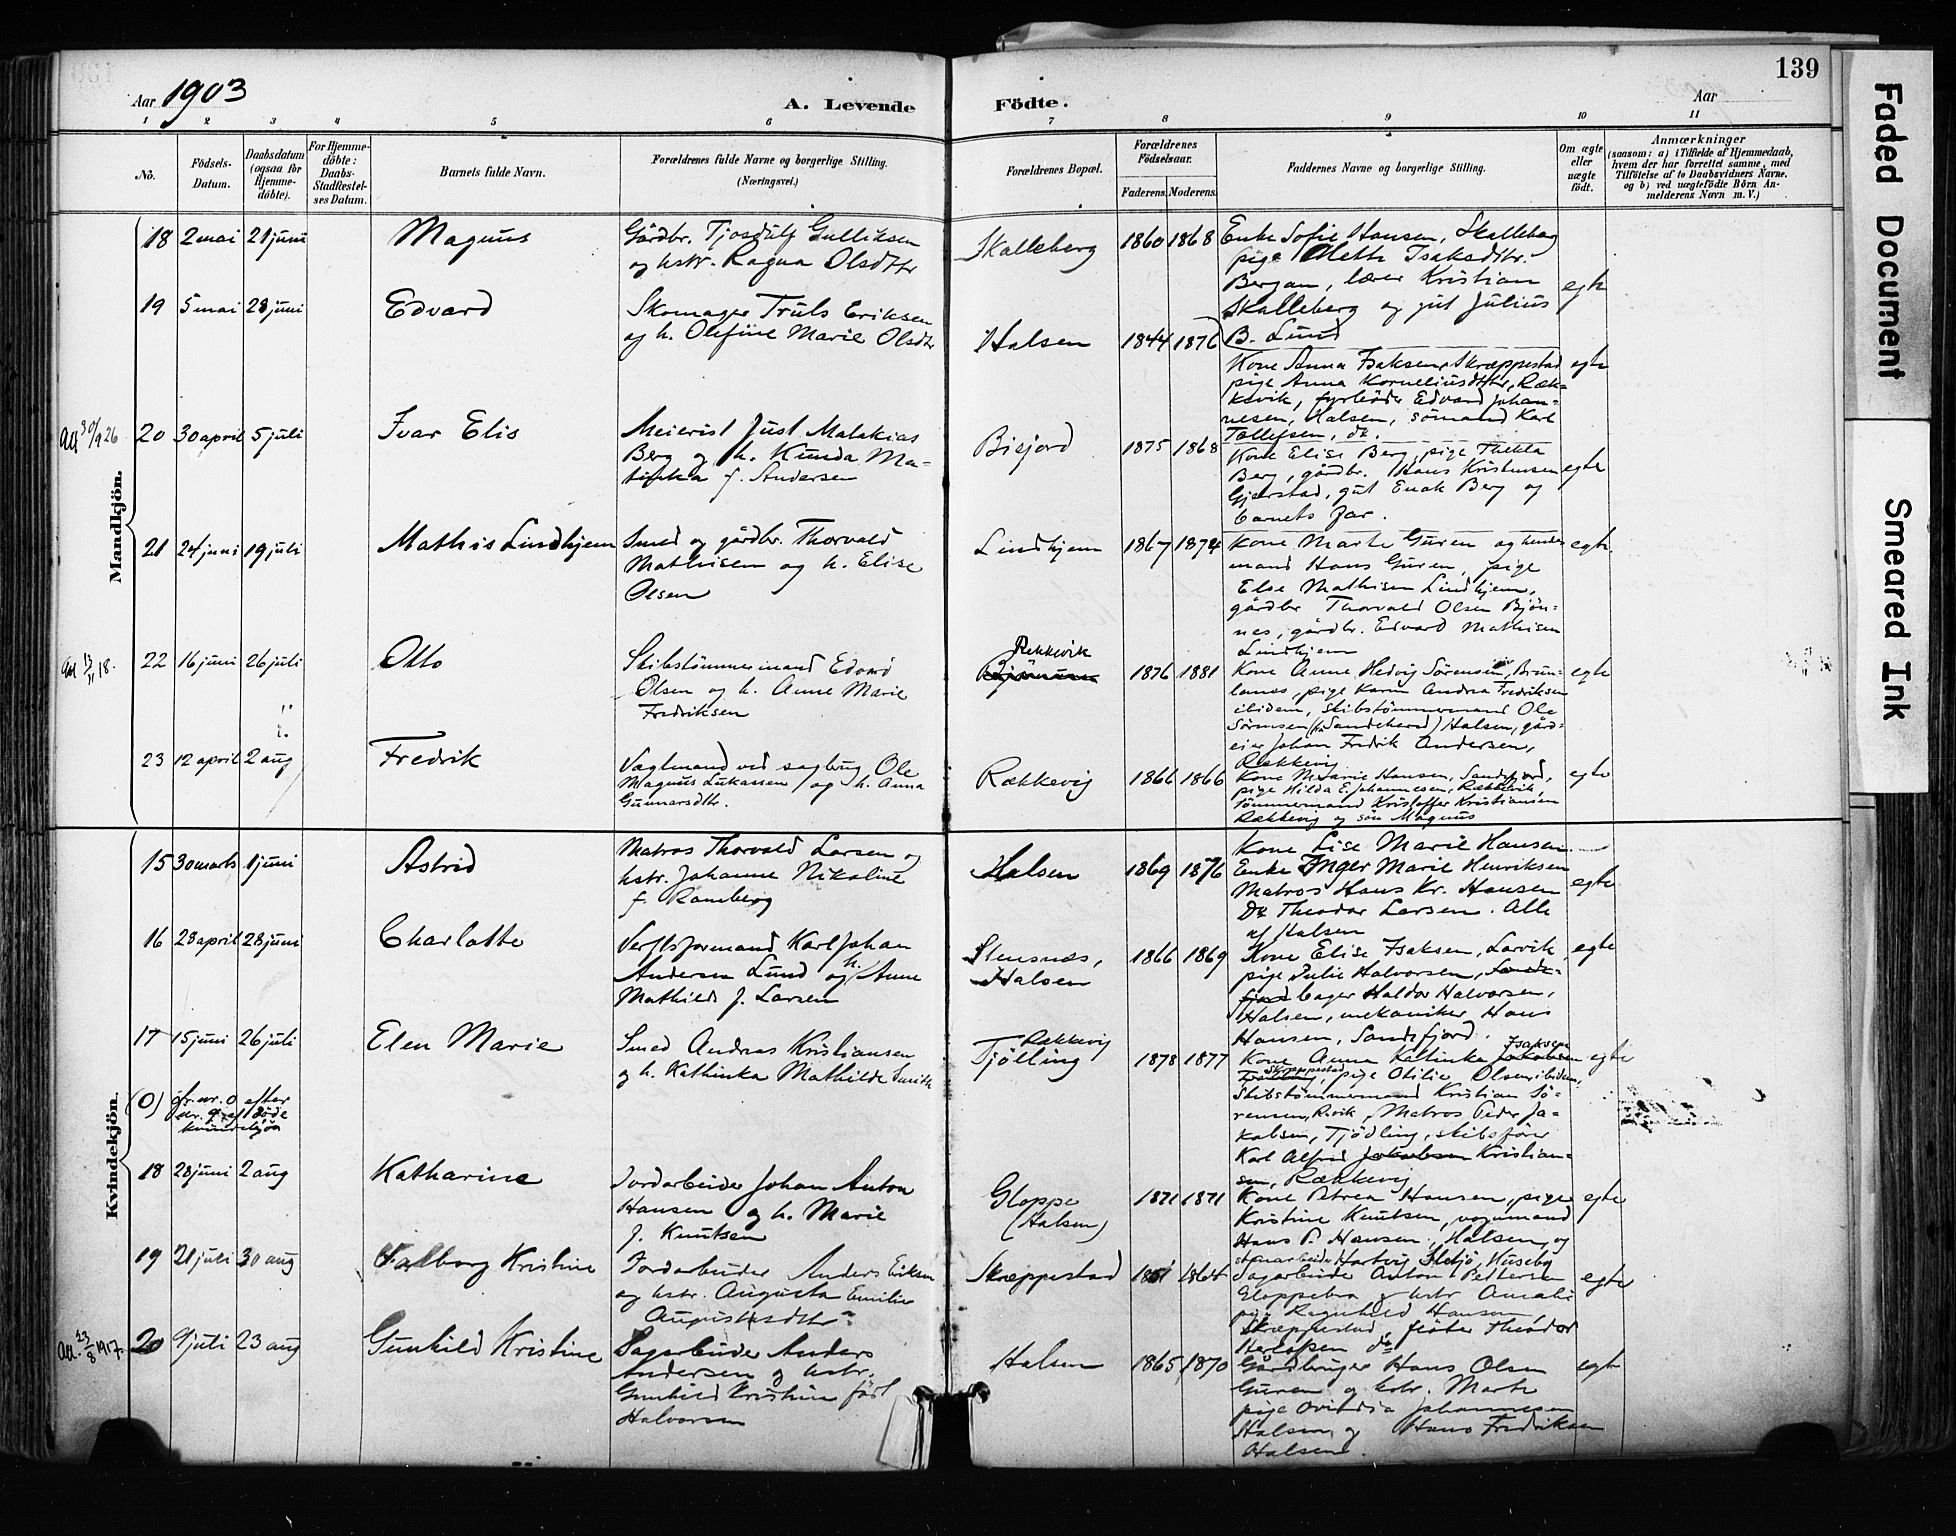 139
Aar 1903
A. Levende Födte.
Aar
1 2 3 4 5 6 7 8 9 10 11
No.
Födsels-Datum.
Daabsdatum (ogsaa for Hjemme-döbte).
For Hjemme-döbte: Daabs-Stadfæstel-ses Datum.
Barnets fulde Navn.
Forældrenes fulde Navne og borgerlige Stilling. (Næringsvei.)
Forældrenes Bopæl.
Forældrenes Födselsaar.
Faderens. Moderens.
Faddernes Navne og borgerlige Stilling.
Om ægte eller uægte födt.
Anmærkninger
(saasom: a) i Tilfælde af Hjemmedaab, hvem der har forrettet samme, med Tilföielse af to Daabsvidners Navne, og b) ved uægtefödte Börn An-melderens Navn m. V.)
Mandkjön.
18 2 mai 21 juni Magnus
Gårdbr. Gulliksen
og hstr. Ragna Olsdtr
Skalleberg 1860 1868
Enke Sofie Hansen, Skalleberg
pige Isaksdtr.
Bergan, lærer Kristian
Skalleberg og gut Julius
B. Lund
egte
19 5 mai 28 juni Edvard
Skomager Truls Eriksen
og h. Olefine Marie Olsdtr
Halsen 1844 1876
Kone Anna Isaksen, Skræppestad
pige Anna Korneliusdtr, Ræk-
kevik, fyrböder Edvard Johan-
nesen, Halsen, sömand Karl
Tollefsen, do.
egte
20 30 april 5 juli Ivar Elis
Meierist Just Malakias
Berg og h. Kunda Ma-
f. Andersen
Bisjord 1875 1868
Kone Elise Berg, pige Thekla
Berg, gårdbr. Hans Kristensen
Gjerstad, gut Enok Berg og
barnets far.
egte
21 24 juni 19 juli Mathis Lindhjem
Smed og gårdbr. Thorvald
Mathisen og h. Elise
Olsen
Lindhjem 1867 1874
Kone Marte Guren og hendes
mand Hans Guren, pige
Else Mathisen Lindhjem,
gårdbr Thorvald Olsen Bjön-
nes, gårdbr. Edvard Mathisen
Lindhjem
egte
22 16 juni 26 juli Otto
Skibstömmermand Edvard
Olsen og h. Anne Marie
Fredriksen
Rekkevik
1876 1881
Kone Anne Hedvig Sörensen, Brun-
lanes, pige Karen Andrea Fredriksen
ibidem, skibstömmermand Ole
Sörensen (fra Sandeherad) Halsen, gård-
eier Johan Fredrik Andersen,
Rækkevig
egte
23 12 april 2 aug Fredrik
Vagtmand ved sagbrug Ole
Magnus Lukassen og h. Anna
Gunnarsdtr.
Rækkevig 1866 1866
Kone Hansen, Sandefjord,
pige Hilda E. Johannesen, Rækkevik,
tömmermand Kristoffer Kristiansen
Rækkevig og sön Magnus
egte
Kvindekjön.
15 30 marts 1 juni Astrid
Matros Thorvald Larsen og
hstr. Johanne Nikoline
f. Ramberg
Halsen 1869 1876
Kone Lise Marie Hansen
Enke Inger Marie Henriksen
Matros Hans Kr. Hansen
Do Theodor Larsen. Alle
af Halsen
egte
16 28 april 28 juni Charlotte
Verftsformand Karl Johan
Andersen Lund og h. Anne
Mathilde f. Larsen
Stensnæs,
Halsen
1866 1869
Kone Elise Isaksen, Larvik
pige Julie Halvorsen, Sande-
fjord bager Haldor Halvorsen,
Halsen, mekaniker Hans
Hansen, Sandefjord.
egte
17 15 juni 26 juli Elen Marie
Smed Andreas Kristiansen
og h. Kathinka Mathilde Smith
Rækkevig
Tjölling
1878 1877
Kone Anna Kathinka Jakobsen Isaksen
Tjölling Skræppestad, pige Otilie Olsen, ibidem,
Skibstömmermand Kristian Sö-
rensen, Rivik, Matros Peder Ja-
kobsen, Tjödling, skibsförer
Karl Alfred Jakobsen Kristian-
sen, Rækkevig
egte
(0) fr. nr. 0 efter
nr. 9 af döde
kvindekjön
18 28 juni 2 aug Katharine
Jordarbeider Johan Anton
Hansen og h. Marie
f. Knutsen
Gloppe
(Halsen)
1871 1871
Kone Petrea Hansen, pige
Kristine Knutsen, vognmand
Hans P. Hansen, Halsen, og
Hartvig Husebÿ
egte
19 21 juli 30 aug Valborg Kristine
Jordarbeider Anders Eriksen
og hstr. Augusta Emilie
Augustsdtr.
Skræppestad 1864
Sagarbeider Anton Pettersen
Gloppebra og hstr Amalie
pige Ragnhild Hansen,
Skræppestad, Theodor
do
egte
20 9 juli 23 aug Gunhild Kristine
Sagarbeider Anders
Andersen og hstr.
Gunhild Kristine födt
Halvorsen
Halsen 1865 1870
Gårdbruger Hans Olsen
Guren og hstr. Marte
pige Johannesen
Halsen, og Hans Fredriksen
Halsen.
egte
Faded Document
Smeared Ink